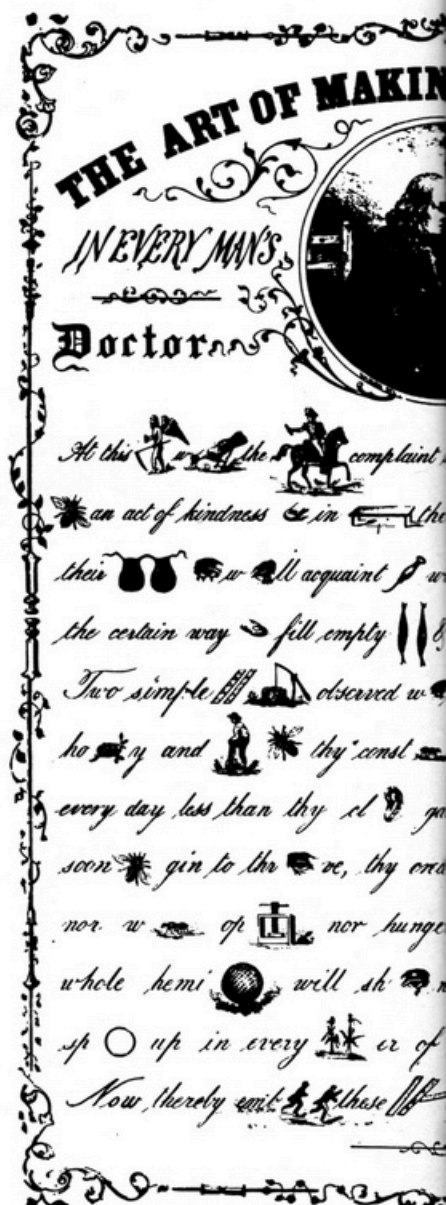 THE ART OF MAKIN
IN EVERY MAN'S
Doctor
At this w the complaint
an act of kindness in the
their w ll acquaint w
the certain way fill empty &
Two simple observed w
ho y and thy const
every day less than thy cl ga
soon gin to thr ve, thy cred
nor w op nor hunge
whole hemi will sh n
sp up in every er of
Now, thereby emb these